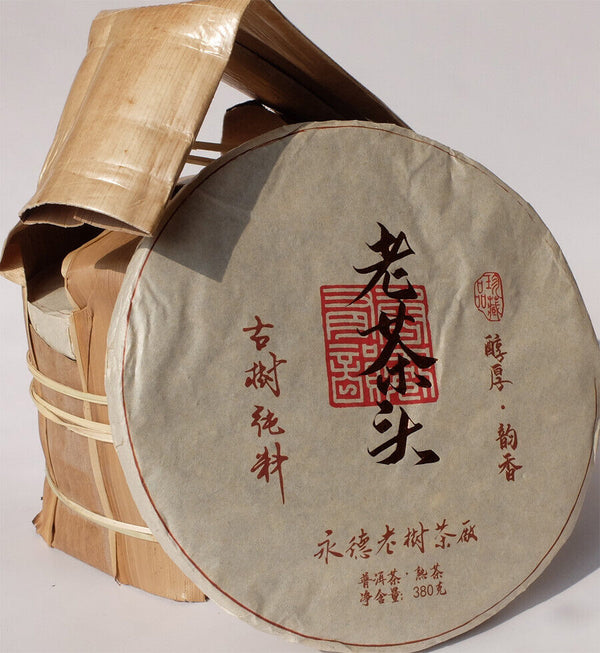 老茶头
古树纯料
珍藏品
醇厚·韵香
永德老树茶厰
普洱茶·熟茶
净含量: 380克